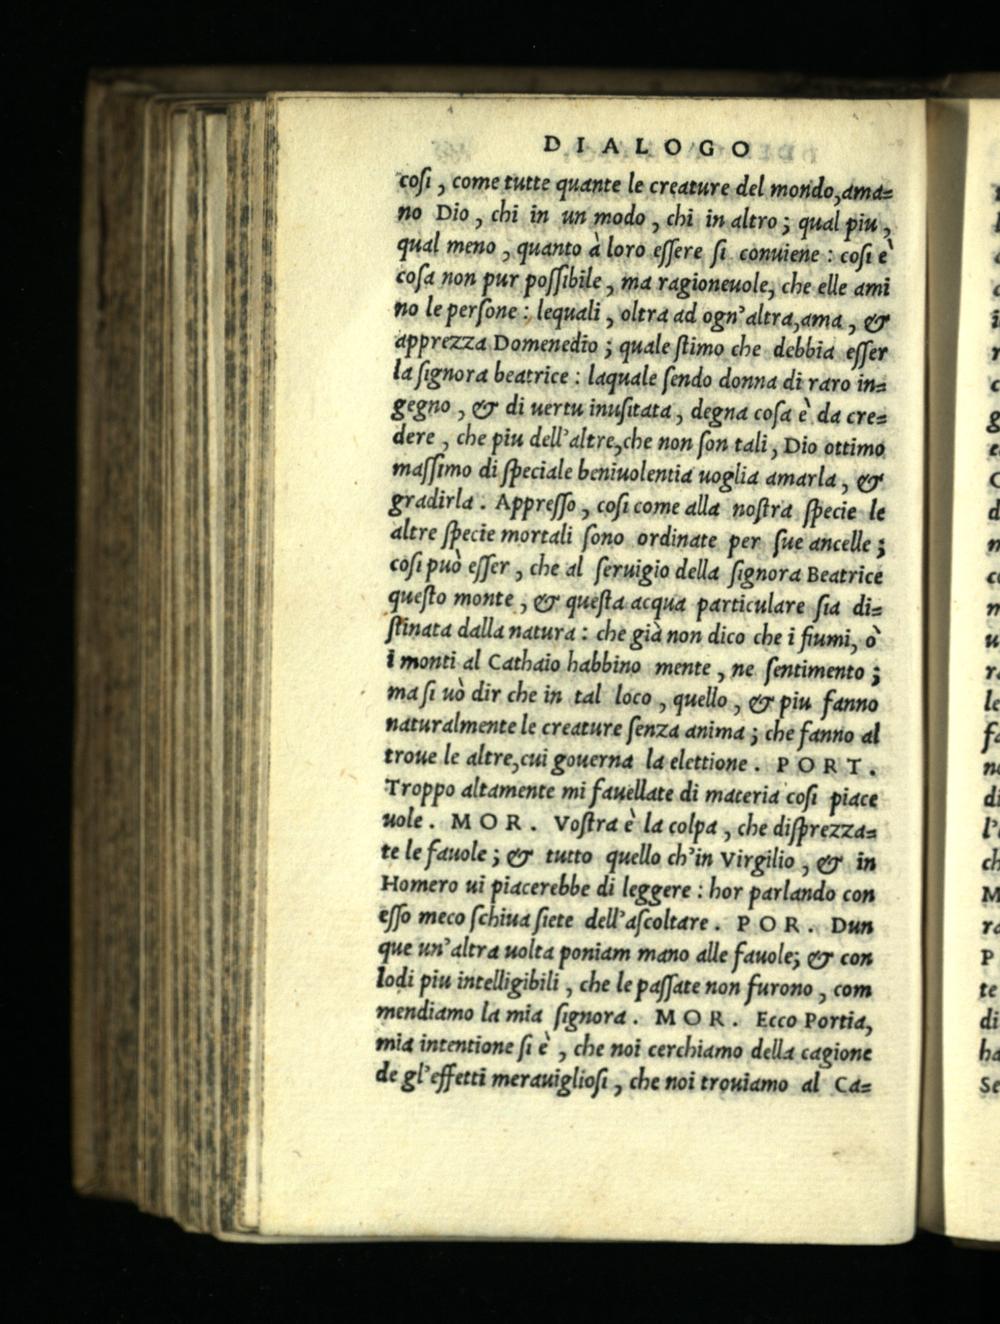 DIALOGO
coſi, come tutte quante le creature del mondo, ama=
no Dio, chi in un modo, chi in altro; qual piu,
qual meno, quanto à loro eſſere ſi conuiene: coſi è
coſa non pur poſſibile, ma ragioneuole, che elle ami
no le perſone: lequali, oltra ad ogn'altra, ama, &
apprezza Domenedio; quale ſtimo che debbia eſſer
la ſignora beatrice: laquale ſendo donna di raro in=
gegno, & di uertu inuſitata, degna coſa è da cre=
dere, che piu dell'altre, che non ſon tali, Dio ottimo
maſſimo di ſpeciale beniuolentia uoglia amarla, &
gradirla. Appreſſo, coſi come alla noſtra ſpecie le
altre ſpecie mortali ſono ordinate per ſue ancelle;
coſi può eſſer, che al ſeruigio della ſignora Beatrice
queſto monte, & queſta acqua particulare ſia di=
ſtinata dalla natura: che già non dico che i fiumi, ò
i monti al Cathaio habbino mente, ne ſentimento;
ma ſi uò dir che in tal loco, quello, & piu fanno
naturalmente le creature ſenza anima; che fanno al
troue le altre, cui gouerna la elettione. PORT.
Troppo altamente mi fauellate di materia coſi piace
uole. MOR. Voſtra è la colpa, che diſprezza=
te le fauole; & tutto quello ch'in Virgilio, & in
Homero ui piacerebbe di leggere: hor parlando con
eſſo meco ſchiua ſiete dell'aſcoltare. POR. Dun
que un'altra uolta poniam mano alle fauole; & con
lodi piu intelligibili, che le paſſate non furono, com
mendiamo la mia ſignora. MOR. Ecco Portia,
mia intentione ſi è, che noi cerchiamo della cagione
de gl'effetti merauiglioſi, che noi trouiamo al Ca=